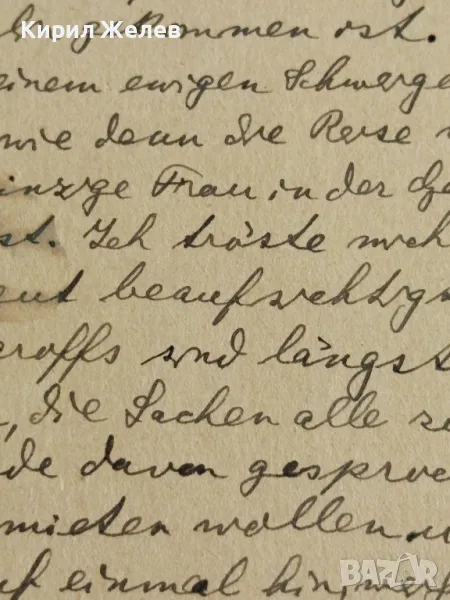 Кирил Желев
kommen ist.
einem ewigen Schwerge
wie denn die Reise
inzige Frau, in der Ge
st. Ich tröste mich
eut beaufsichtigt
eroffs sind längst
, die Sachen alle
de davon gesproc
mieten wollen, u
uf einmal hin, werf
BAZAR.bg